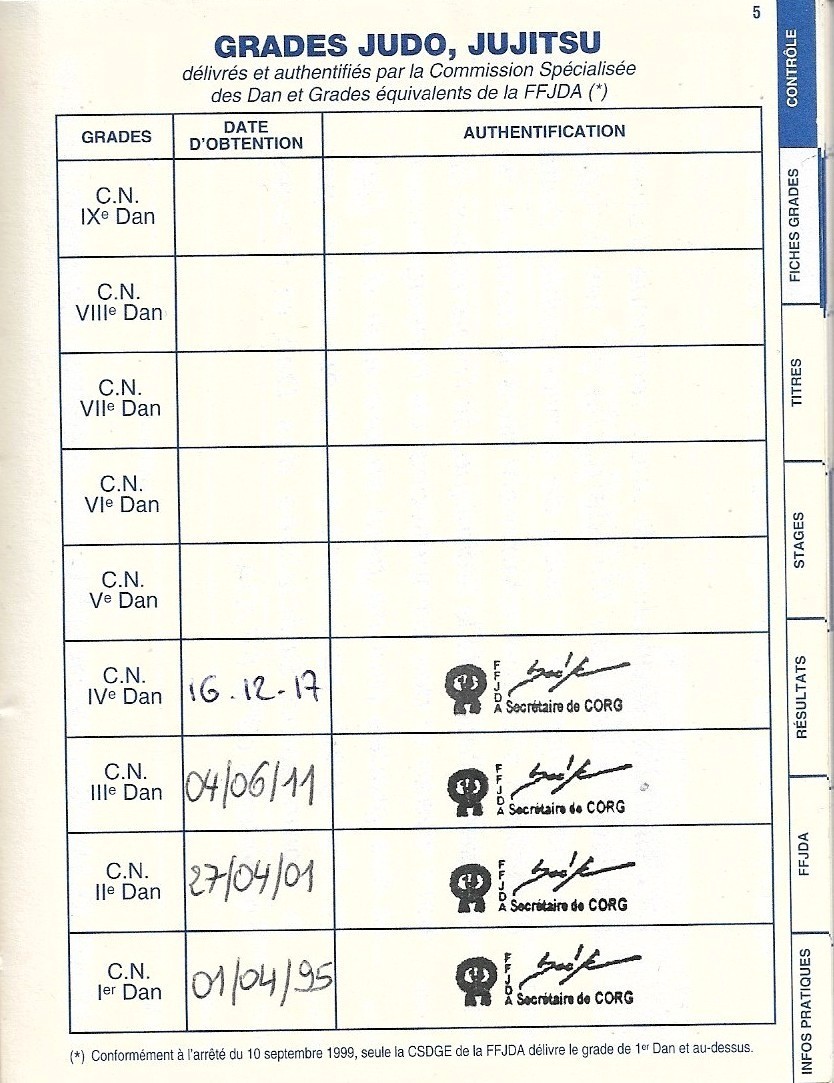 5
GRADES JUDO, JUJITSU
délivrés et authentifiés par la Commission Spécialisée
des Dan et Grades équivalents de la FFJDA (*)
GRADES
DATE
D'OBTENTION
AUTHENTIFICATION
C.N.
IXe Dan
C.N.
VIIIe Dan
C.N.
VIIe Dan
C.N.
VIe Dan
C.N.
Ve Dan
C.N.
IVe Dan
16.12-17
FFJDA
Secrétaire de CORG
C.N.
IIIe Dan
04/06/11
FFJDA
Secrétaire de CORG
C.N.
IIe Dan
27/04/01
FFJDA
Secrétaire de CORG
C.N.
Ier Dan
01/04/95
FFJDA
Secrétaire de CORG
(*) Conformément à l'arrêté du 10 septembre 1999, seule la CSDGE de la FFJDA délivre le grade de 1er Dan et au-dessus.
CONTRÔLE
FICHES GRADES
TITRES
STAGES
RÉSULTATS
FFJDA
INFOS PRATIQUES